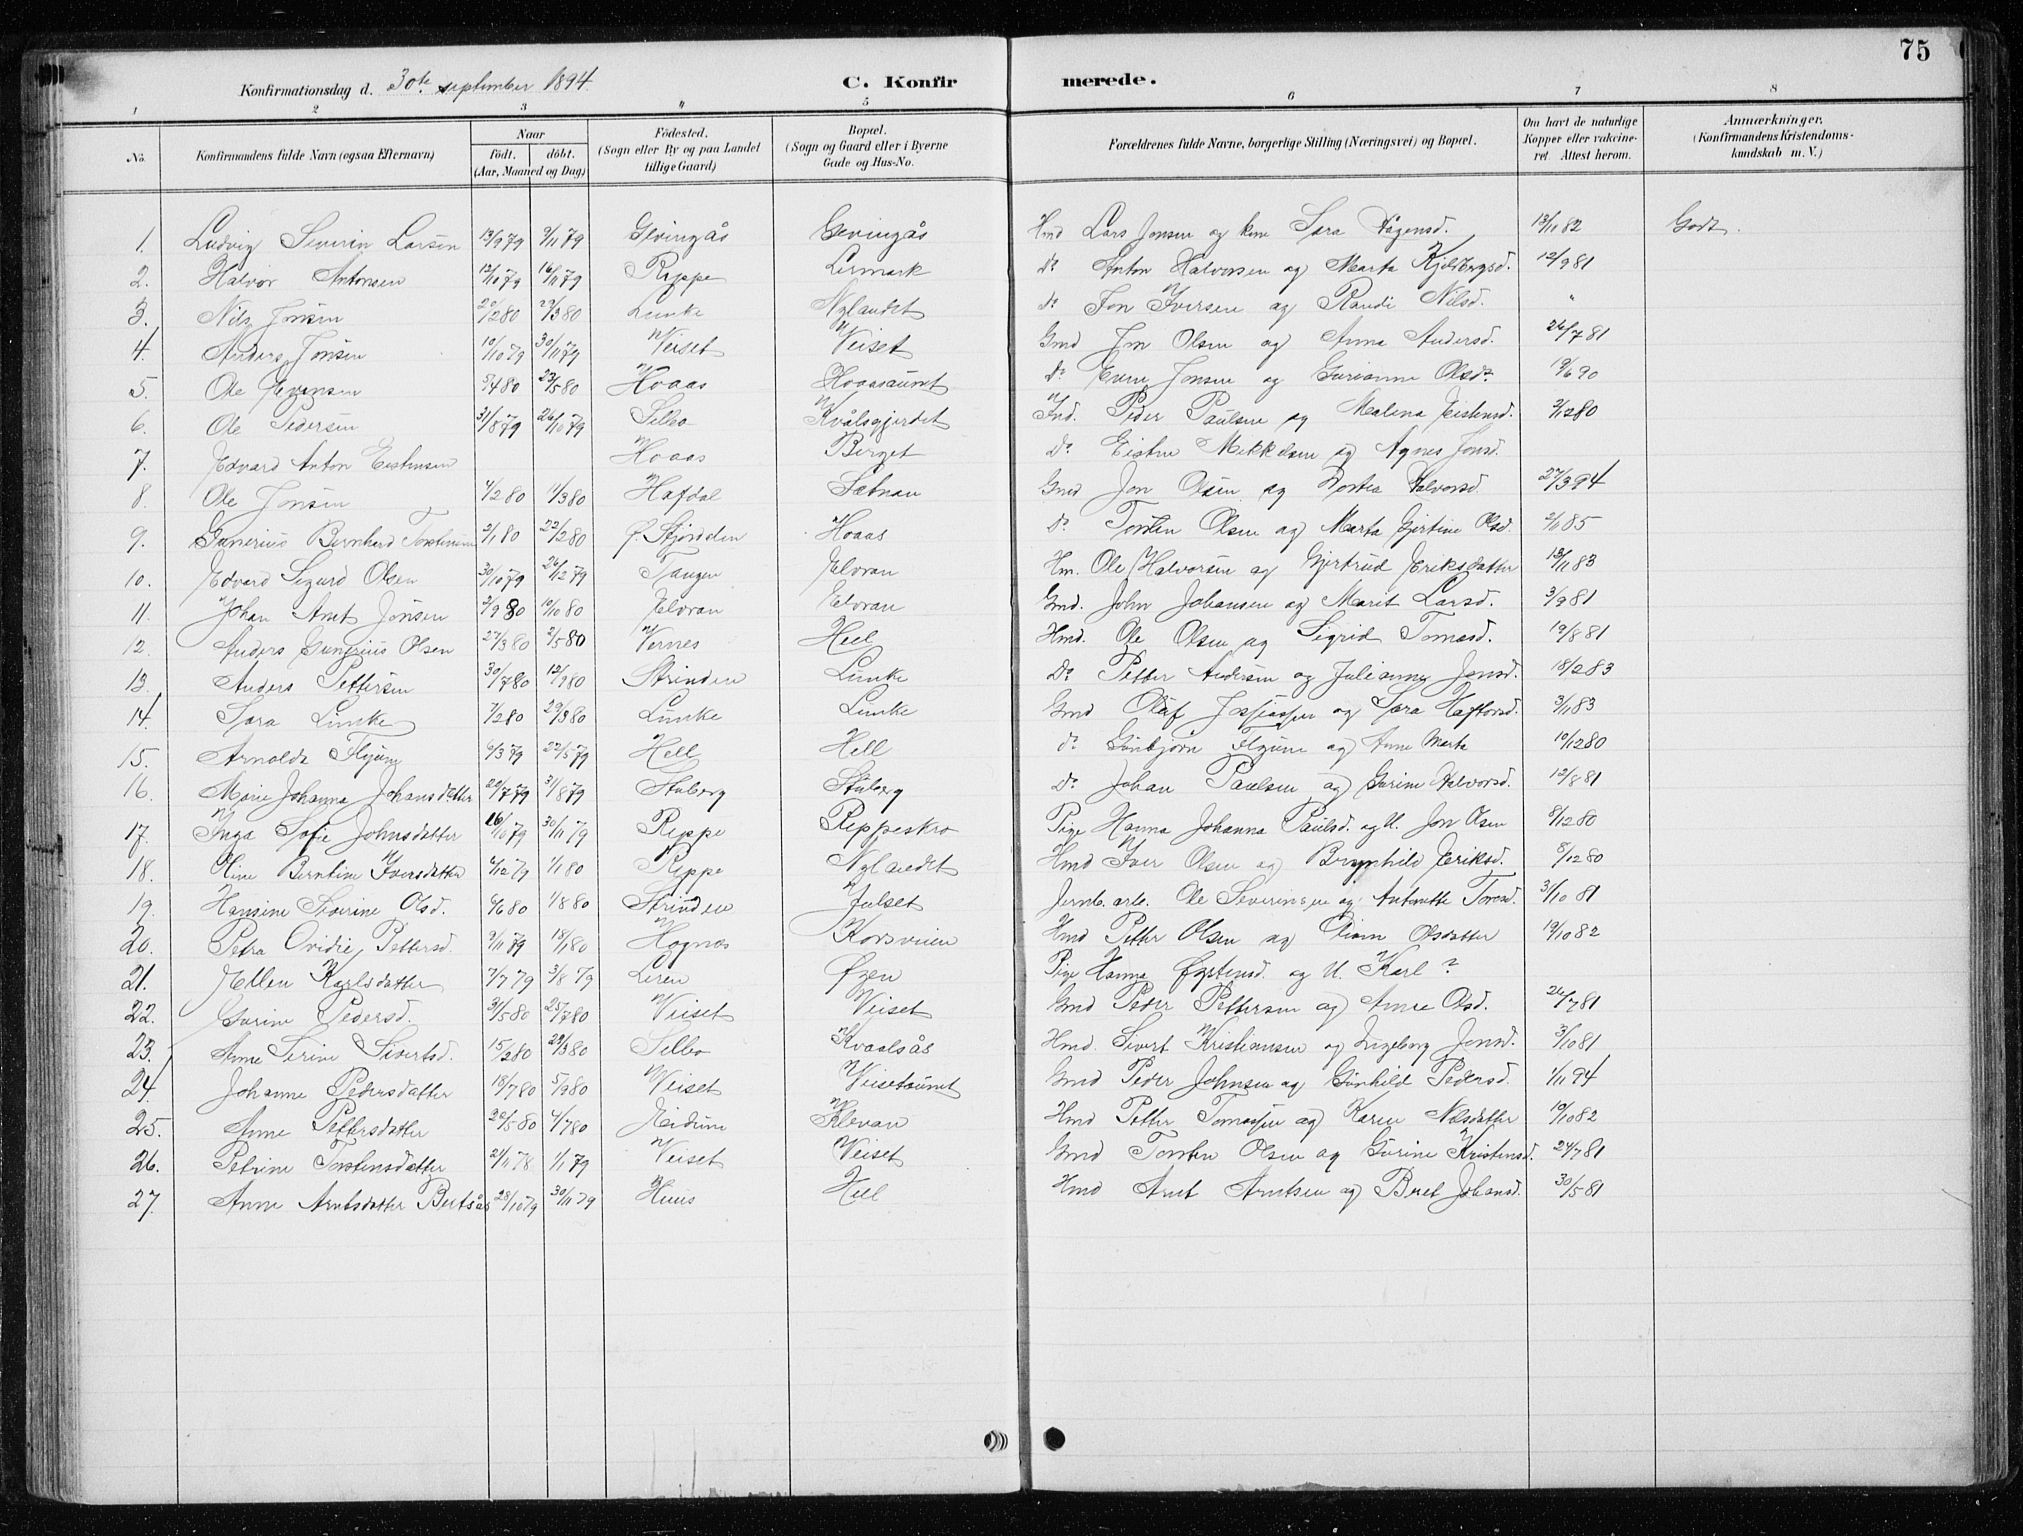 75
Konfirmationsdag d. 30te september 1894.
C. Konfirmerede.
1 2 3 4 5 6 7 8
No. Konfirmandens fulde Navn (ogsaa Efternavn) Naar födt. döbt. (Aar, Maaned og Dag) Födested. (Sogn eller By og paa Landet tillige Gaard) Bopæl. (Sogn og Gaard eller i Byerne Gade og Hus-No. Forældrenes fulde Navne, borgerlige Stilling (Næringsvei) og Bopæl. Om havt de naturlige Kopper eller vakcineret. Attest herom. Anmærkninger. (Konfirmandens Kristendomskundskab m. V.)
1. Ludvig Severin Larsen 13/9 79 9/11 79 Gevingås Gevingås Hmd Lars Jonsen og kone Sara Hågensd. 13/11 82 Godt.
2. Halvor Antonsen 12/10 79 16/11 79 Rippe Lermark do Anton Halvorsen og Marta Kjeldbergsd. 12/9 81
3. Nils Jonsen 20/2 80 29/3 80 Lunke Nylandet do Jon Iversen og Randi Nilsd. "
4. Anders Jonsen 10/10 79 30/11 79 Veiset Veiset Gmd Jon Olsen og Anna Andersd. 26/7 81
5. Ole Evensen 5/4 80 23/5 80 Hoaas Hoaasaunet do Even Jonsen og Gurianna Olsdr 19/6 90
6. Ole Pedersen 31/8 79 26/10 79 Selbo Kvålsgjerdet Ind. Peder Paulsen og Malena Eistensd. 2/12 80
7. Edvard Anton Eistensen Hoaas Berget do Eisten Mikkelsen og Agnes Jonsd.
8. Ole Jonsen 4/2 80 11/3 80 Hafdal Sætnan Gmd Jon Olsen og Dortea Halvorsd. 27/3 94
9. Gunerius Bernhard Torstensen 2/1 80 22/2 80 Ø. Stjördalen Hoaas do Torsten Olsen og Marta Gjertine Olsd. 2/11 85
10. Edvard Sigurd Olsen 30/10 79 26/12 79 Tangen Elvran Hm. Ole Halvorsen og Gjertrud Eriksdatter 13/11 83
11. Johan Arnt Jonsen 2/9 80 10/10 80 Elvran Elvran Gmd. John Johansen og Marit Larsd. 3/9 81
12. Anders Gunerius Olsen 27/3 80 2/5 80 Vernes Hell Hmd. Ole Olsen og Sigrid Tomasd. 19/8 81
13. Anders Pettersen 30/7 80 12/9 80 Strinden Lunke Do Petter Andersen og Julianna Jonsd. 18/2 83
14. Sara Lunke 7/2 80 29/3 80 Lunke Lunke Gmd Olaf og Sara Haftorsd. 3/11 83
15. Arnolda 6/3 79 22/5 79 Hell Hell do Gunbjörn og Anne Marta 10/12 80
16. Marie Johanna Johansdatter 20/7 79 31/8 79 Stuberg Stuberg Do Johan Paulsen og Gurine Halvorsd. 12/8 81
17. Inga Sofie Johnsdatter 16/10 79 30/11 79 Rippe Rippeskro Pige Hanna Johanna Paulsd. og U. Jon Olsen 8/12 80
18. Oline Berntine Iversdatter 6/12 79 1/1 80 Rippe Nylandet Hmd Iver Olsen og Brynhild Eriksd. 8/12 80
19. Hansine Severine Olsd. 6/6 80 1/8 80 Strinden Julset Jernb. arb. Ole Severinsen og Antonette Toresd. 31/10 81
20. Petra Ovidie Pettersd. 9/11 79 18/1 80 Hognes Korsveien Hmd Petter Olsen og Olsdatter 19/10 82
21. Ellen Karlsdatter 7/7 79 3/8 79 Leren Øzen Pige Hanna Øystensd. og U. Karl ?
22. Gurine Pedersd. 31/5 80 25/7 80 Veiset Veiset Gmd Peder Pettersen og Anne Olsd. 26/7 81
23. Anne Serine Sivertsd. 15/2 80 29/3 80 Selbo Kvaalsås Hmd Sivert Kristiansen og Ingeborg Jonsd. 3/10 81
24. Johanne Pedersdatter 18/7 80 5/9 80 Veiset Veisetaunet Gmd Peder Johnsen og Gunhild Pedersd. 1/11 94
25. Anne Pettersdatter 20/5 80 4/7 80 Meidrum Klevan Hmd Petter Tomassen og Karen Nilsdatter 19/10 82
26. Petrine Torstensdatter 21/11 78 1/1 79 Veiset Veiset Gmd Torsten Olsen og Gurine Kristensd. 24/7 81
27. Anne Arntsdatter 28/10 79 30/11 79 Huus Hell Hmd Arnt Arntsen og Beret Johansd. 30/5 81